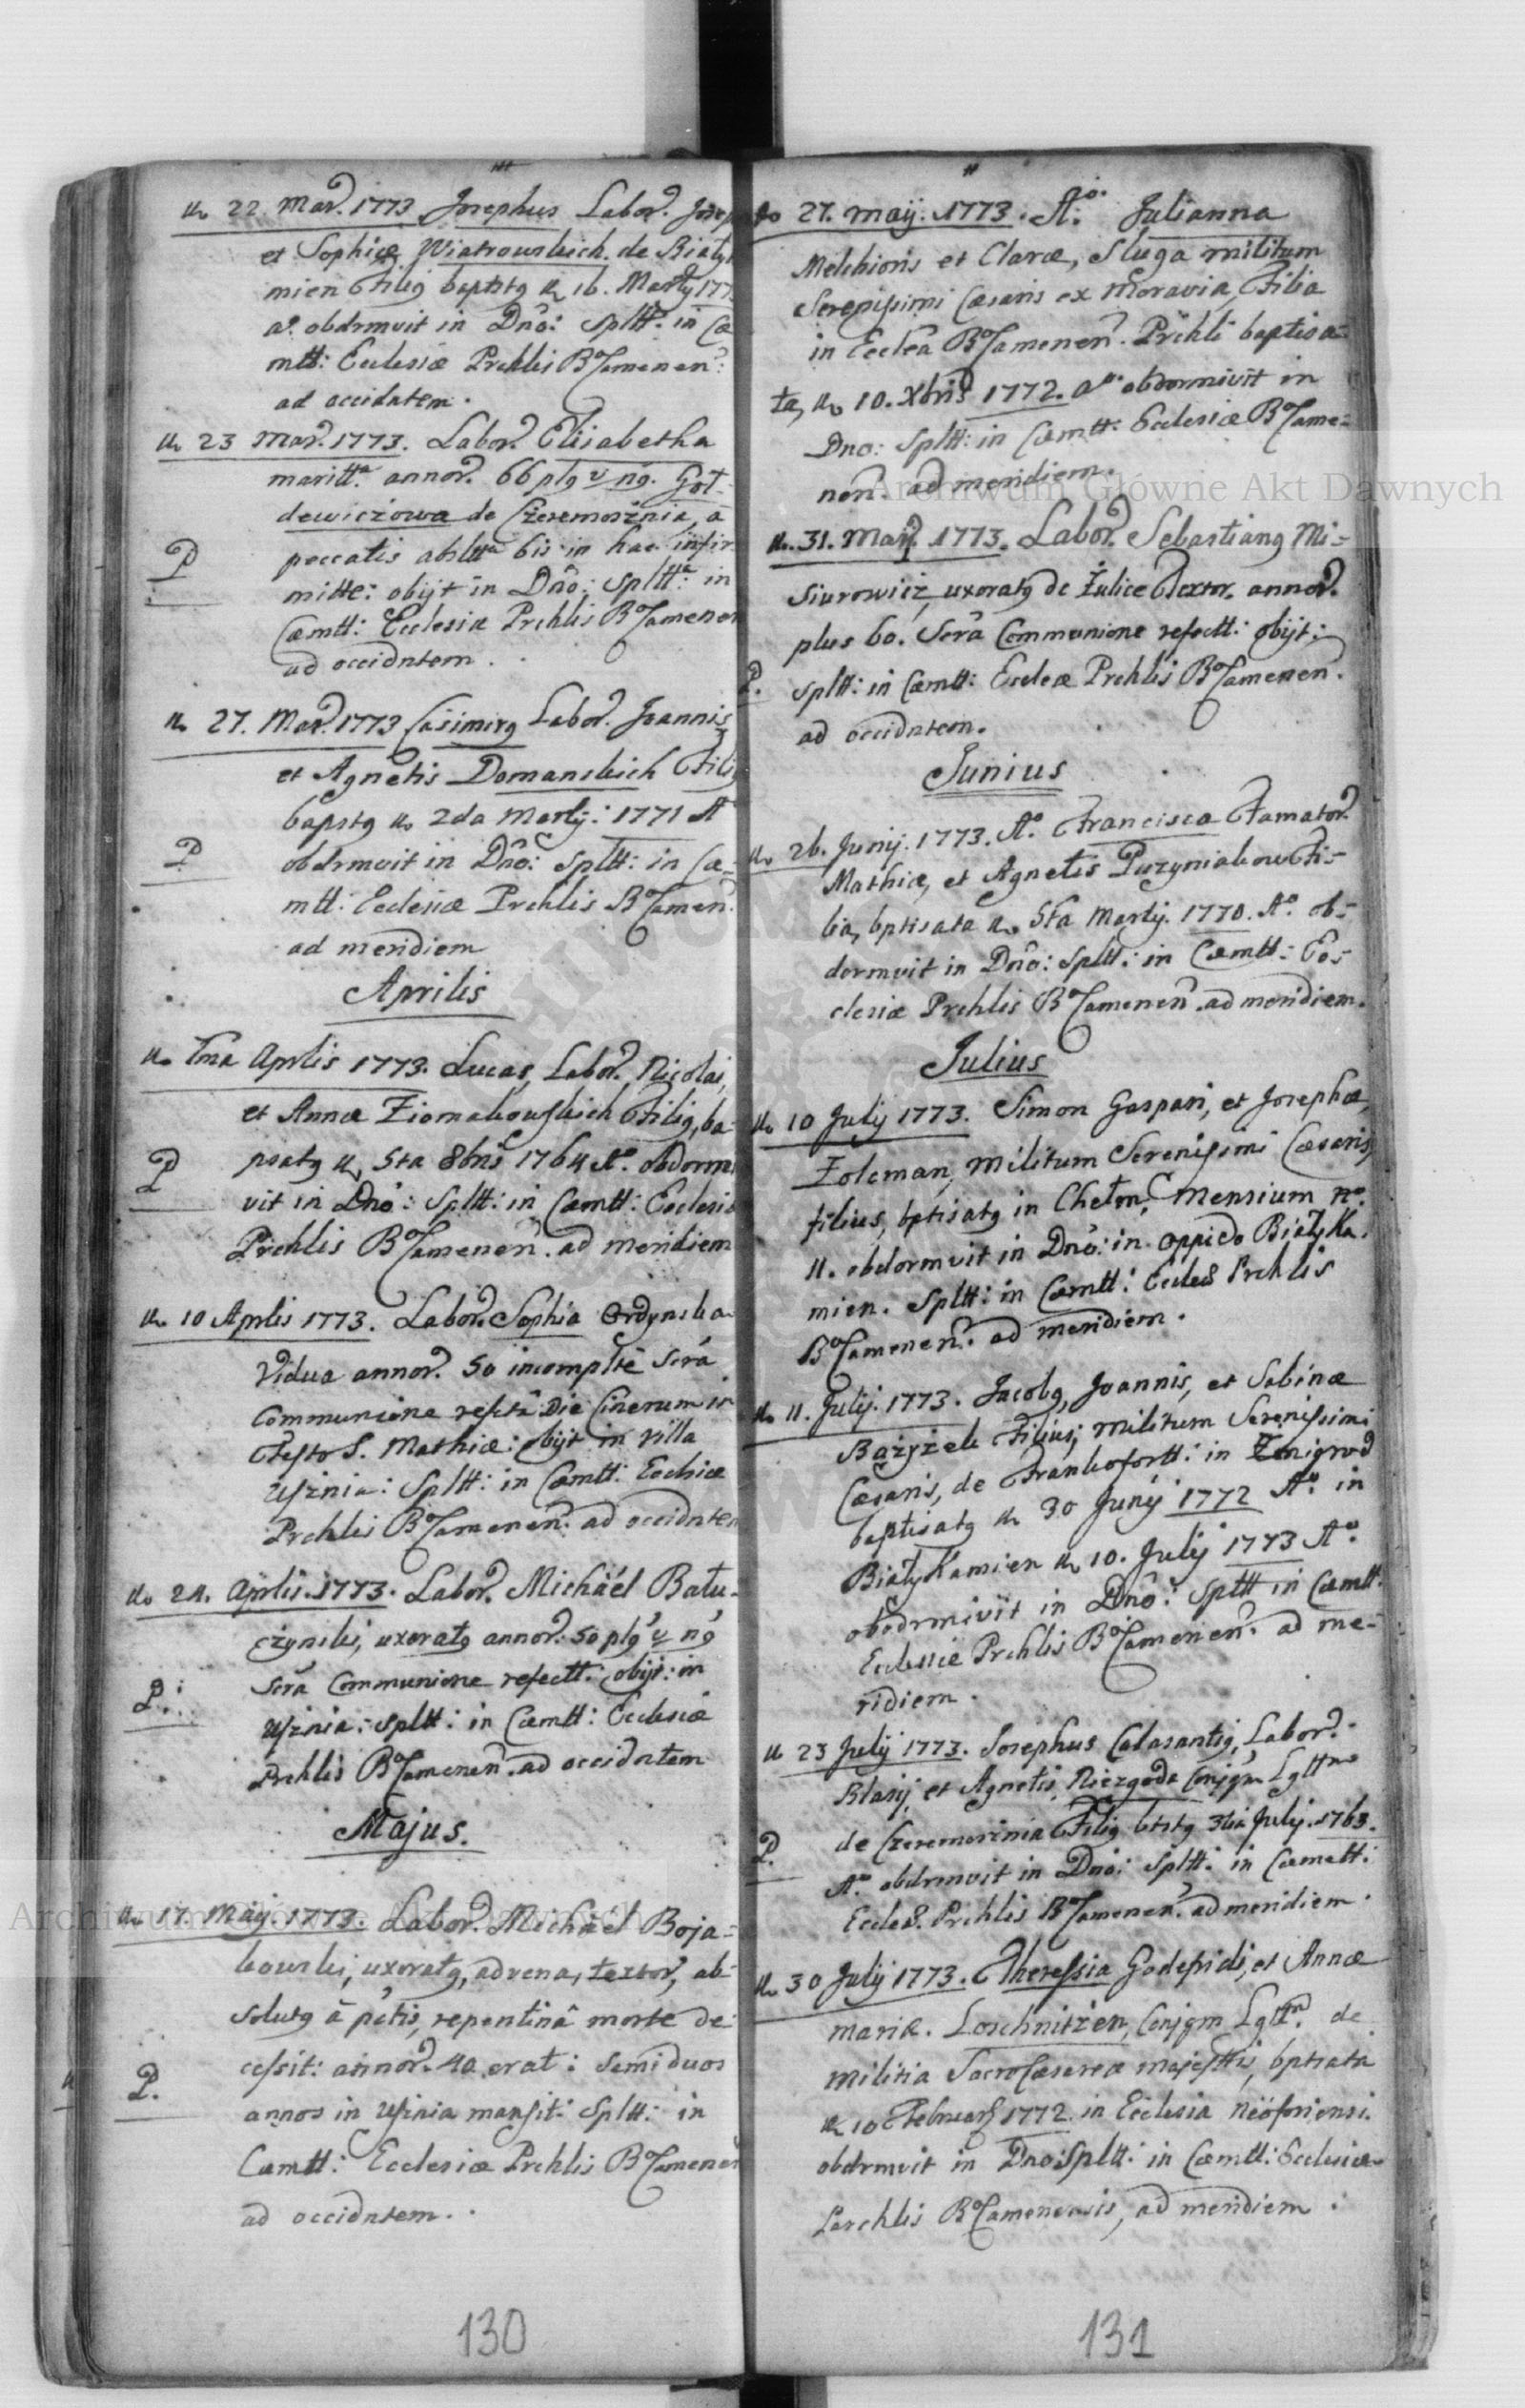 22. Mar. 1773 Josephus Labor. Josep
et Sophiæ Wiatrowskich. de Biały
mien Filig baptstg 16. Martij 177
a° obdrmvit in Dno: Spltt: in Cæ
mtt: Ecclesiæ Prchlis BCamenen:
ad occidatem.
23 Mar. 1773. Labor. Elisabetha
maritta annor. 66 plg v ng. Goł-
dewiczowa de Czeremosznia, a
P peccatis absltta bis in hac infir
mitte: obijt in Dno: Spltta: in
Cæmtt: Ecclesiæ Prchlis BCamenen
ad occidntem.
27. Mar. 1773 Casimirg Labor. Joannis
et Agnetis Domanskich Filig
bapstg 2da Martij: 1771 A
P obdrmvit in Dno: Spltt: in Cæ-
mtt: Ecclesiæ Prchlis BCamen.
ad meridiem
Aprilis
1ma Aprlis 1773. Lucas, Labor. Nicolai,
et Annæ Ziomakowskich Filig, ba-
P psatg 5ta 8bris 1764 A° obdorm
vit in Dno: Spltt: in Cæmtt: Ecclesiæ
Prchlis BCamenen. ad meridiem
10 Aprlis 1773. Labor. Sophia Ordynska
Vidua annor. 50 incomplte Scra
Communione refcta Die Cinerum in
Festo S. Mathiæ: obijt in villa
Usznia: Spltt: in Cæmtt: Ecchiæ
Prchlis BCamenen: ad occidntem
24. Aprlis. 1773. Labor. Michaël Batu-
czynski, uxoratg annor. 50 plg v ng
P: Scra Communione refectt: obijt: in
Usznia: spltt: in Cæmtt: Ecclesiæ
Prchlis BCamenen. ad occidntem
Majus.
17. Maij. 1773. Labor. Michaël Boja-
kowski, uxoratg, advena, textor, ab-
solutg à pctis, repentinâ morte de-
cessit: annor. 40 erat: Semiduos
P. annos in Usznia mansit: Spltt: in
Cæmtt: Ecclesiæ Prchlis BCamenen
ad occidntem.
130
27. Maij. 1773. A°. Julianna
Melchioris et Claræ, Sluga militum
Serenissimi Cæsaris ex Moravia, Filia
in Ecclea BCamenen. Prchli baptisa-
ta, 10. Xbris 1772. a° obdormivit in
Dno: Spltt: in Cæmtt: Ecclesiæ BCame-
nen. ad meridiem.
31. Maij. 1773. Labor. Sebastiang Mi-
siurowicz, uxoratg de Żulice Textor. annor.
plus 60. Scra Communione refectt: obijt:
P. Spltt: in Cæmtt: Eccleæ Prchlis BCamenen.
ad occidntem.
Junius
26. Junij. 1773. A° Francisca Famator.
Mathiæ, et Agnetis Puzyniakow Fi-
lia, bptisata 5ta Martij. 1770. A° ob-
dormvit in Dno: Spltt: in Cæmtt: Ec-
clesiæ Prchlis BCamenen. ad meridiem.
Julius
10 Julij 1773. Simon Gaspari, et Josephæ,
Zoleman, militum Serenissimi Cæsaris,
filius, bptisatg in Chełm, Mensium n°.
11. obdormvit in Dno: in oppido Białyka.
mien. Spltt: in Cæmtt: Eccles Prchlis
BCamenen. ad meridiem.
11. Julij. 1773. Jacobg, Joannis, et Sabinæ
Bażyżek Filius, militum Serenissimi
Cæsaris, de Frankofortt: in Zmigrod
baptisatg 30 Junij 1772 A° in
BiałyKamien 10. Julij 1773 A°
obodrmivit in Dno: Spltt in Cæmtt:
Ecclesiæ Prchlis BCamenen. ad me-
ridiem.
23 Julij 1773. Josephus Calasantig, Labor.
Blasij, et Agnetis, Niezgoda Conjgm Lgttmo
P. de Czeremosznia Filig btstg 3tia Julij. 1763.
A° obdrmvit in Dno: Spltt: in Cæmett:
Eccles. Prchlis BCamenen. ad meridiem.
30 Julij 1773. Theressia Godefridi, et Annæ
mariæ. Loschnitzen, Conjgm Lgttm. de
militia Sacro Cæsarea majesttis, bptsata
10 Februarij 1772 in Ecclesia neoforiensi.
obdrmvit in Dno: Spltt: in Cæmtt: Ecclesiæ
Parchlis BCamenensis, ad meridiem:
131
Archiwum Główne Akt Dawnych